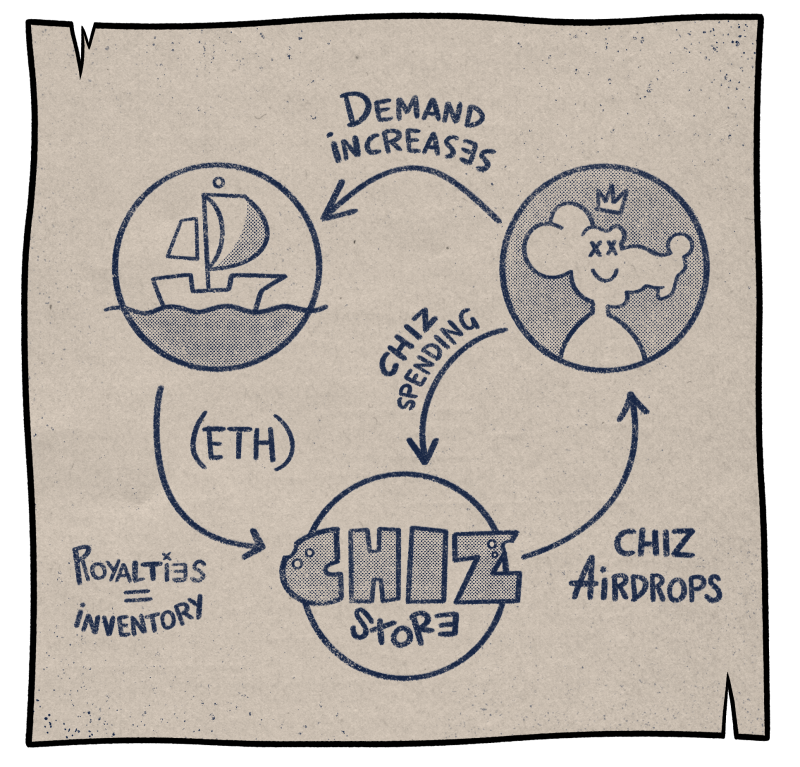 DEMAND
iNCREASES
CHIZ
SPENDING
(ETH)
ROYALTiES
=
iNVENTORY
CHIZ
STORE
CHIZ
AiRDROPS